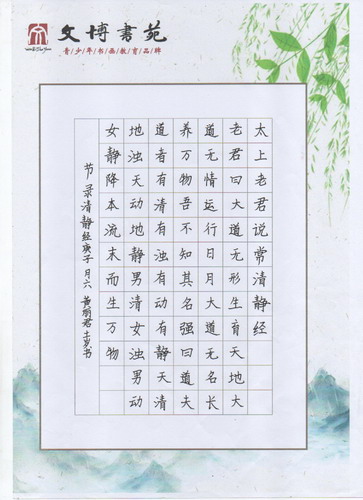 文博書苑
青少年书画教育品牌
太上老君说常清静经
老君曰大道无形生育天地大
道无情运行日月大道无名长
养万物吾不知其名强曰道夫
道者有清有浊有动有静天清
地浊天动地静男清女浊男动
女静降本流末而生万物
节录清静经庚子月六 黄丽君 岁书